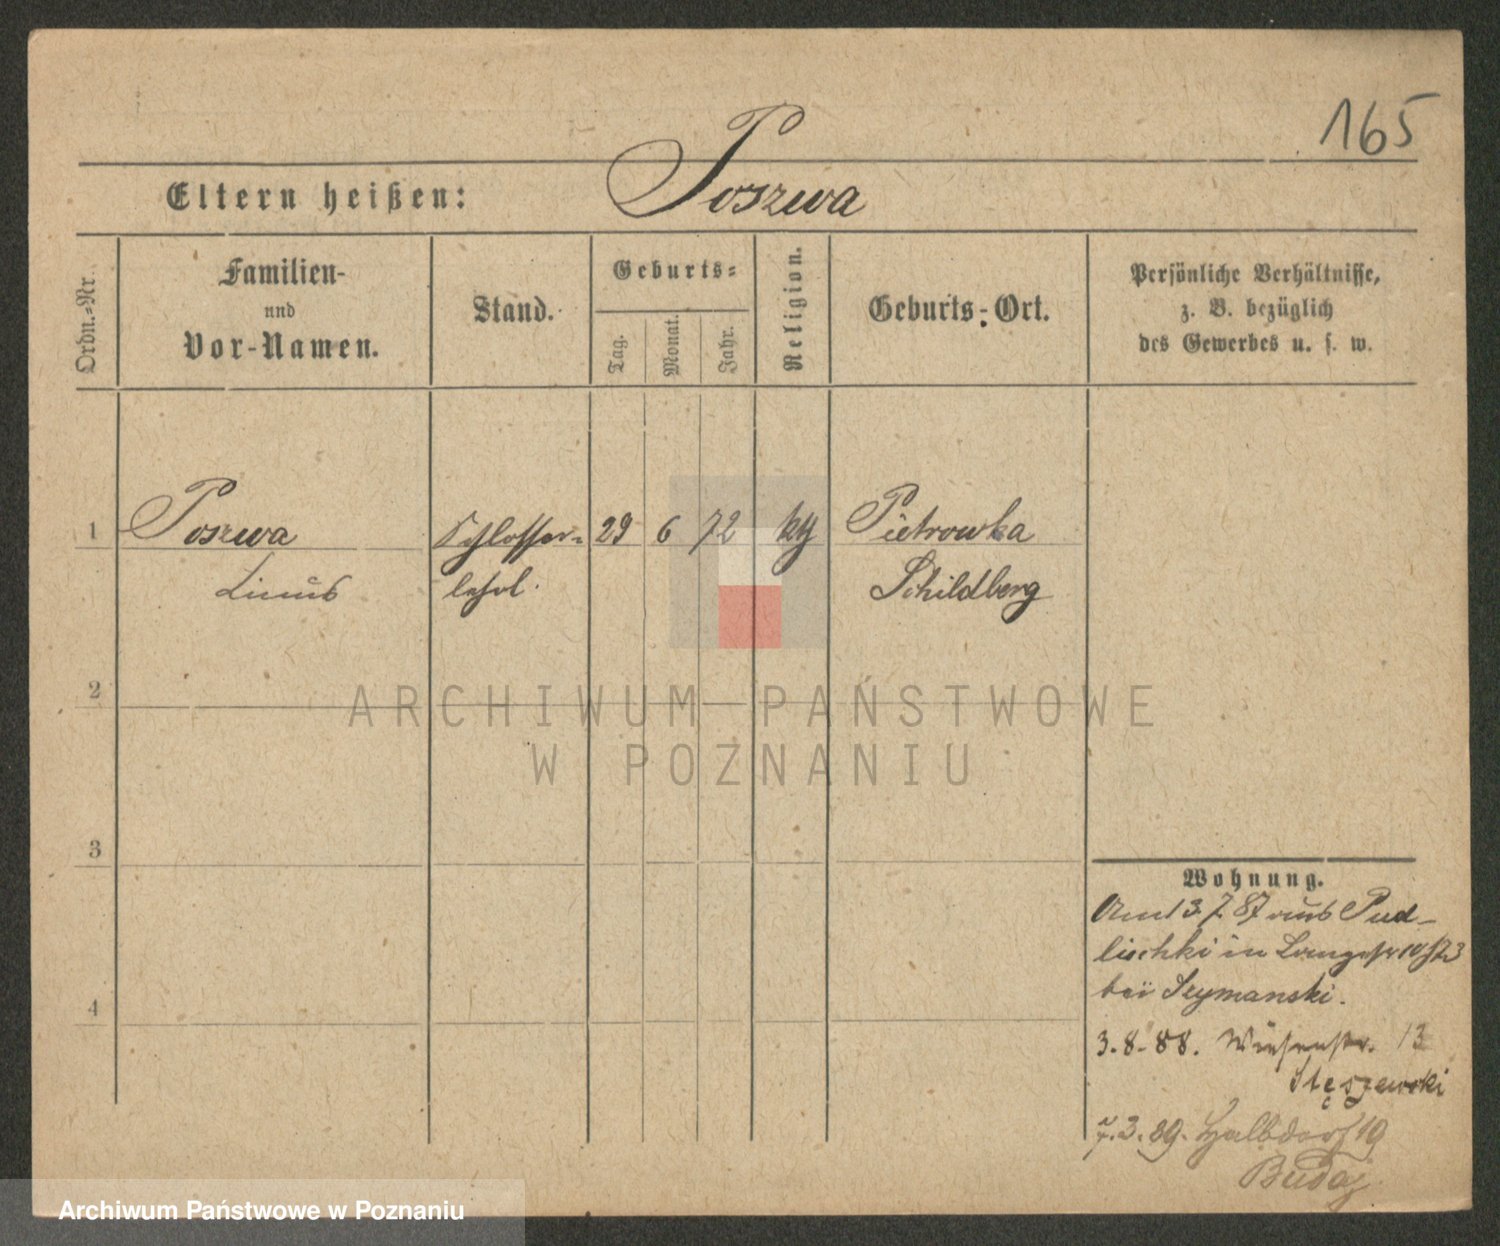 165
Eltern heißen: Poszwa
Ordn.-Nr.
Familien-
und
Vor-Namen.
Stand.
Geburts-
Tag.
Monat.
Jahr.
Religion.
Geburts-Ort.
Persönliche Verhältnisse,
z. B. bezüglich
des Gewerbes u. s. w.
1 Poszwa Schlosser- 29 6 72 Pietrowka
Linus lehrl. Schildberg
2
ARCHIWUM PAŃSTWOWE
W POZNANIU
3
4
Wohnung.
Am 13.7.87 aus Pud-
lischki in Langestr 10
bei Szymanski.
3.8.88. Wiesenstr. 13
Stęszewski
7.3.89. Halbdorf 19
Budaj
Archiwum Państwowe w Poznaniu